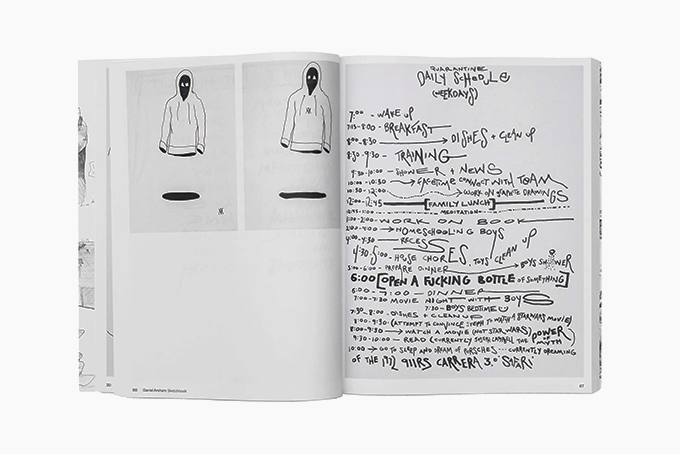 66 Daniel Arsham Sketchbook
QUARANTINE
DAILY SCHEDULE
(WEEKDAYS)
7:00 - WAKE UP
7:15-8:00 - BREAKFAST
8:00-8:30 → DISHES + CLEAN UP
8:30-9:30 - TRAINING
9:30-10:00 - SHOWER + NEWS
10:00-10:30 → FACETIME CONNECT WITH TEAM
10:30-12:00 → WORK ON GRAPHITE DRAWINGS
12:00-12:45 [FAMILY LUNCH]
MEDITATION
1:00-2:00 - WORK ON BOOK
2:00-4:00 → HOMESCHOOLING BOYS
4:00-4:30 - RECESS
4:30-5:00 - HOUSE CHORES, TOYS CLEAN UP
5:00-6:00 - PREPARE DINNER → BOYS SHOWER
6:00 [OPEN A FUCKING BOTTLE OF SOMETHING]
6:00-7:00 - DINNER
7:00-7:30 MOVIE NIGHT WITH BOYS
7:30 - BOYS BEDTIME
7:30-8:00 - DISHES + CLEAN UP
8:00-9:30 - (ATTEMPT TO CONVINCE STEPH TO WATCH A STARWARS MOVIE)
8:00-9:30 → WATCH A MOVIE (NOT STAR WARS)
9:30-10:00 - READ (CURRENTLY JOSEPH CAMPBELL THE POWER OF MYTH)
10:00 → GO TO SLEEP AND DREAM OF PORSCHES... CURRENTLY DREAMING
OF THE 1972 911RS CARRERA 3.0 SAFARI
67